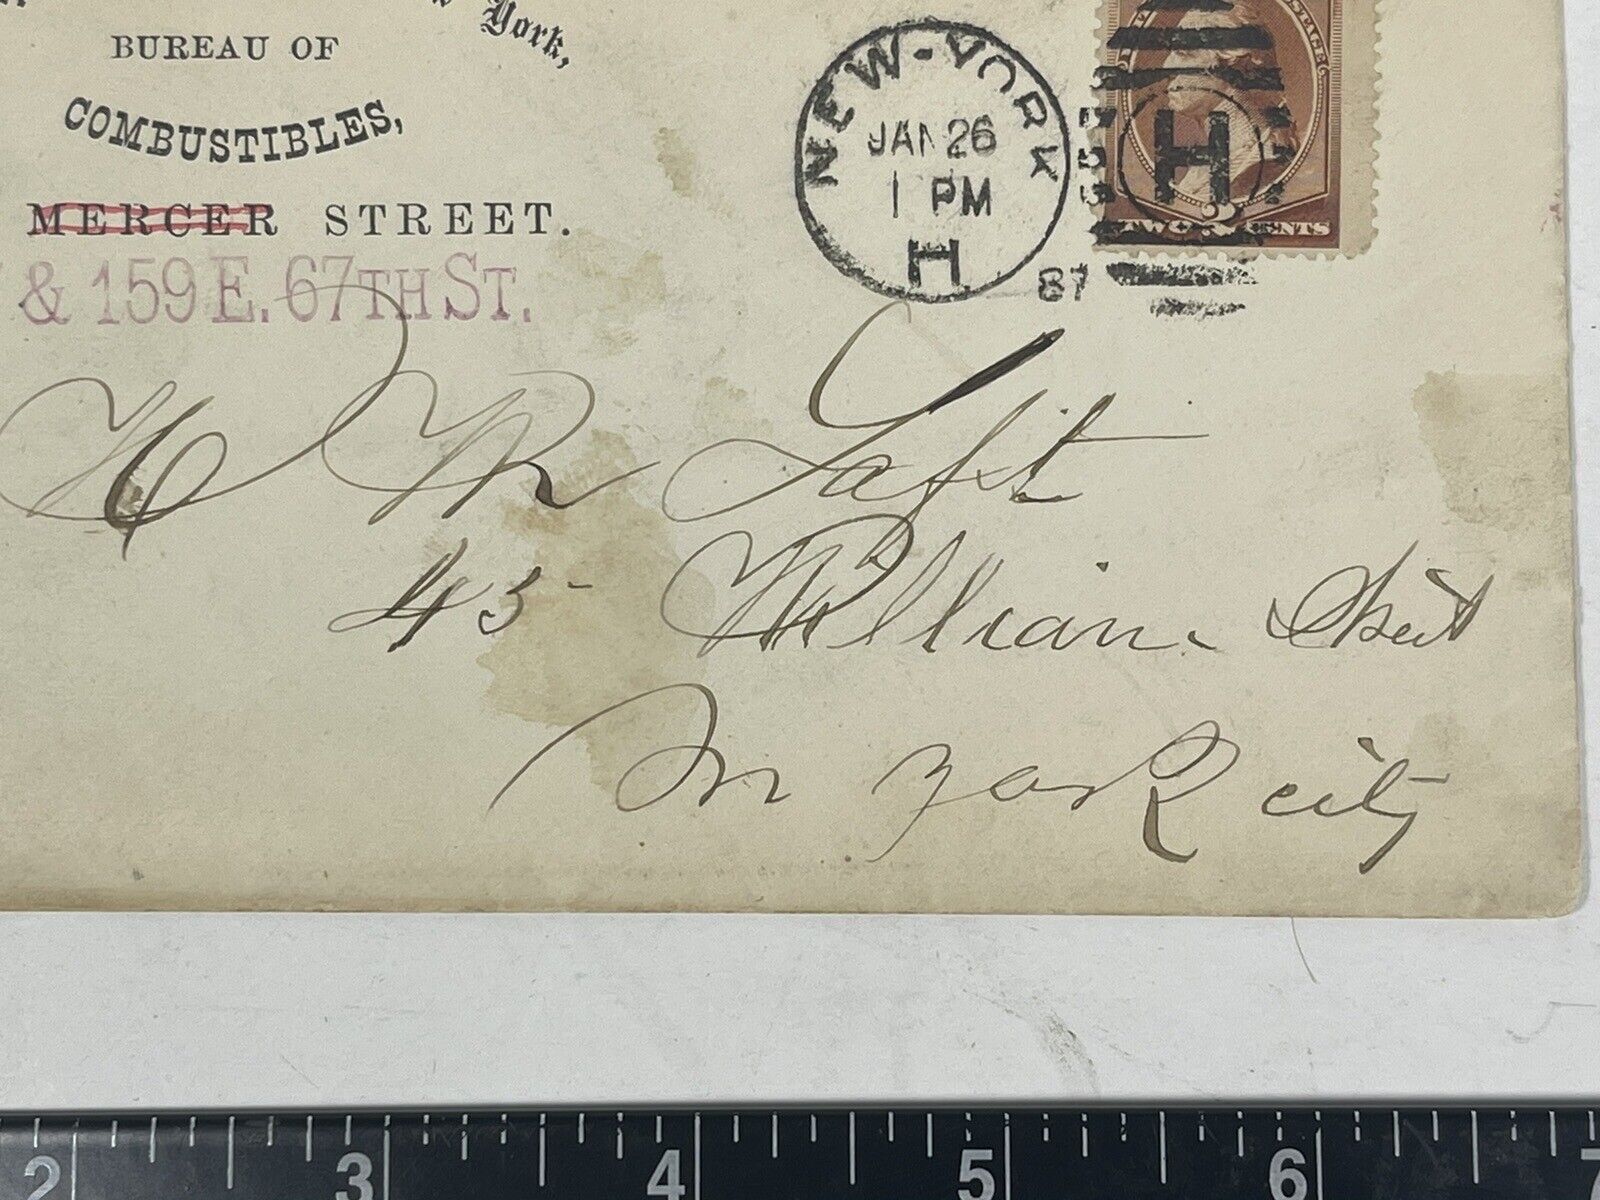 York,
BUREAU OF
COMBUSTIBLES,
MERCER STREET.
& 159 E. 67TH ST.
NEW-YORK
JAN 26
1 PM
H
87
H
POSTAGE
TWO CENTS
H R Taft
45 William Street
New York city
2 3 4 5 6 7